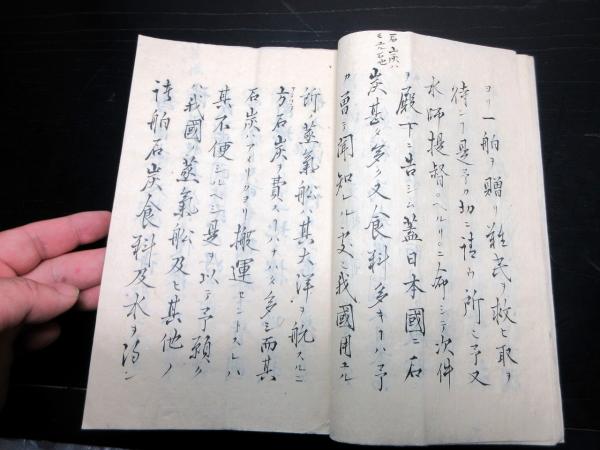 ヨリ一舶ヲ贈リ難民ヲ救ヒ取ヲ
待シ丁是予カ切ニ請ウ所ニ予又
水師提督○ヘルリ○ニ命シテ次件
ヲ殿下ニ告シム蓋日本國ニ石
石炭ハ
モユル石也
炭甚タ多ク又食料多キヿハ予
カ曽ニ聞知ル処ニ我國用ユル
所ノ蒸氣船ハ其大洋ヲ航スルニ
方石炭ヲ費スヿハナハタ多シ而其
石炭ヲアメリカヨリ搬運セントスレハ
其不便シルヘシ是ヲ以テ予願ク
ハ我國ノ蒸氣船及ヒ其他ノ
諸舶石炭食料及水ヲ得ン